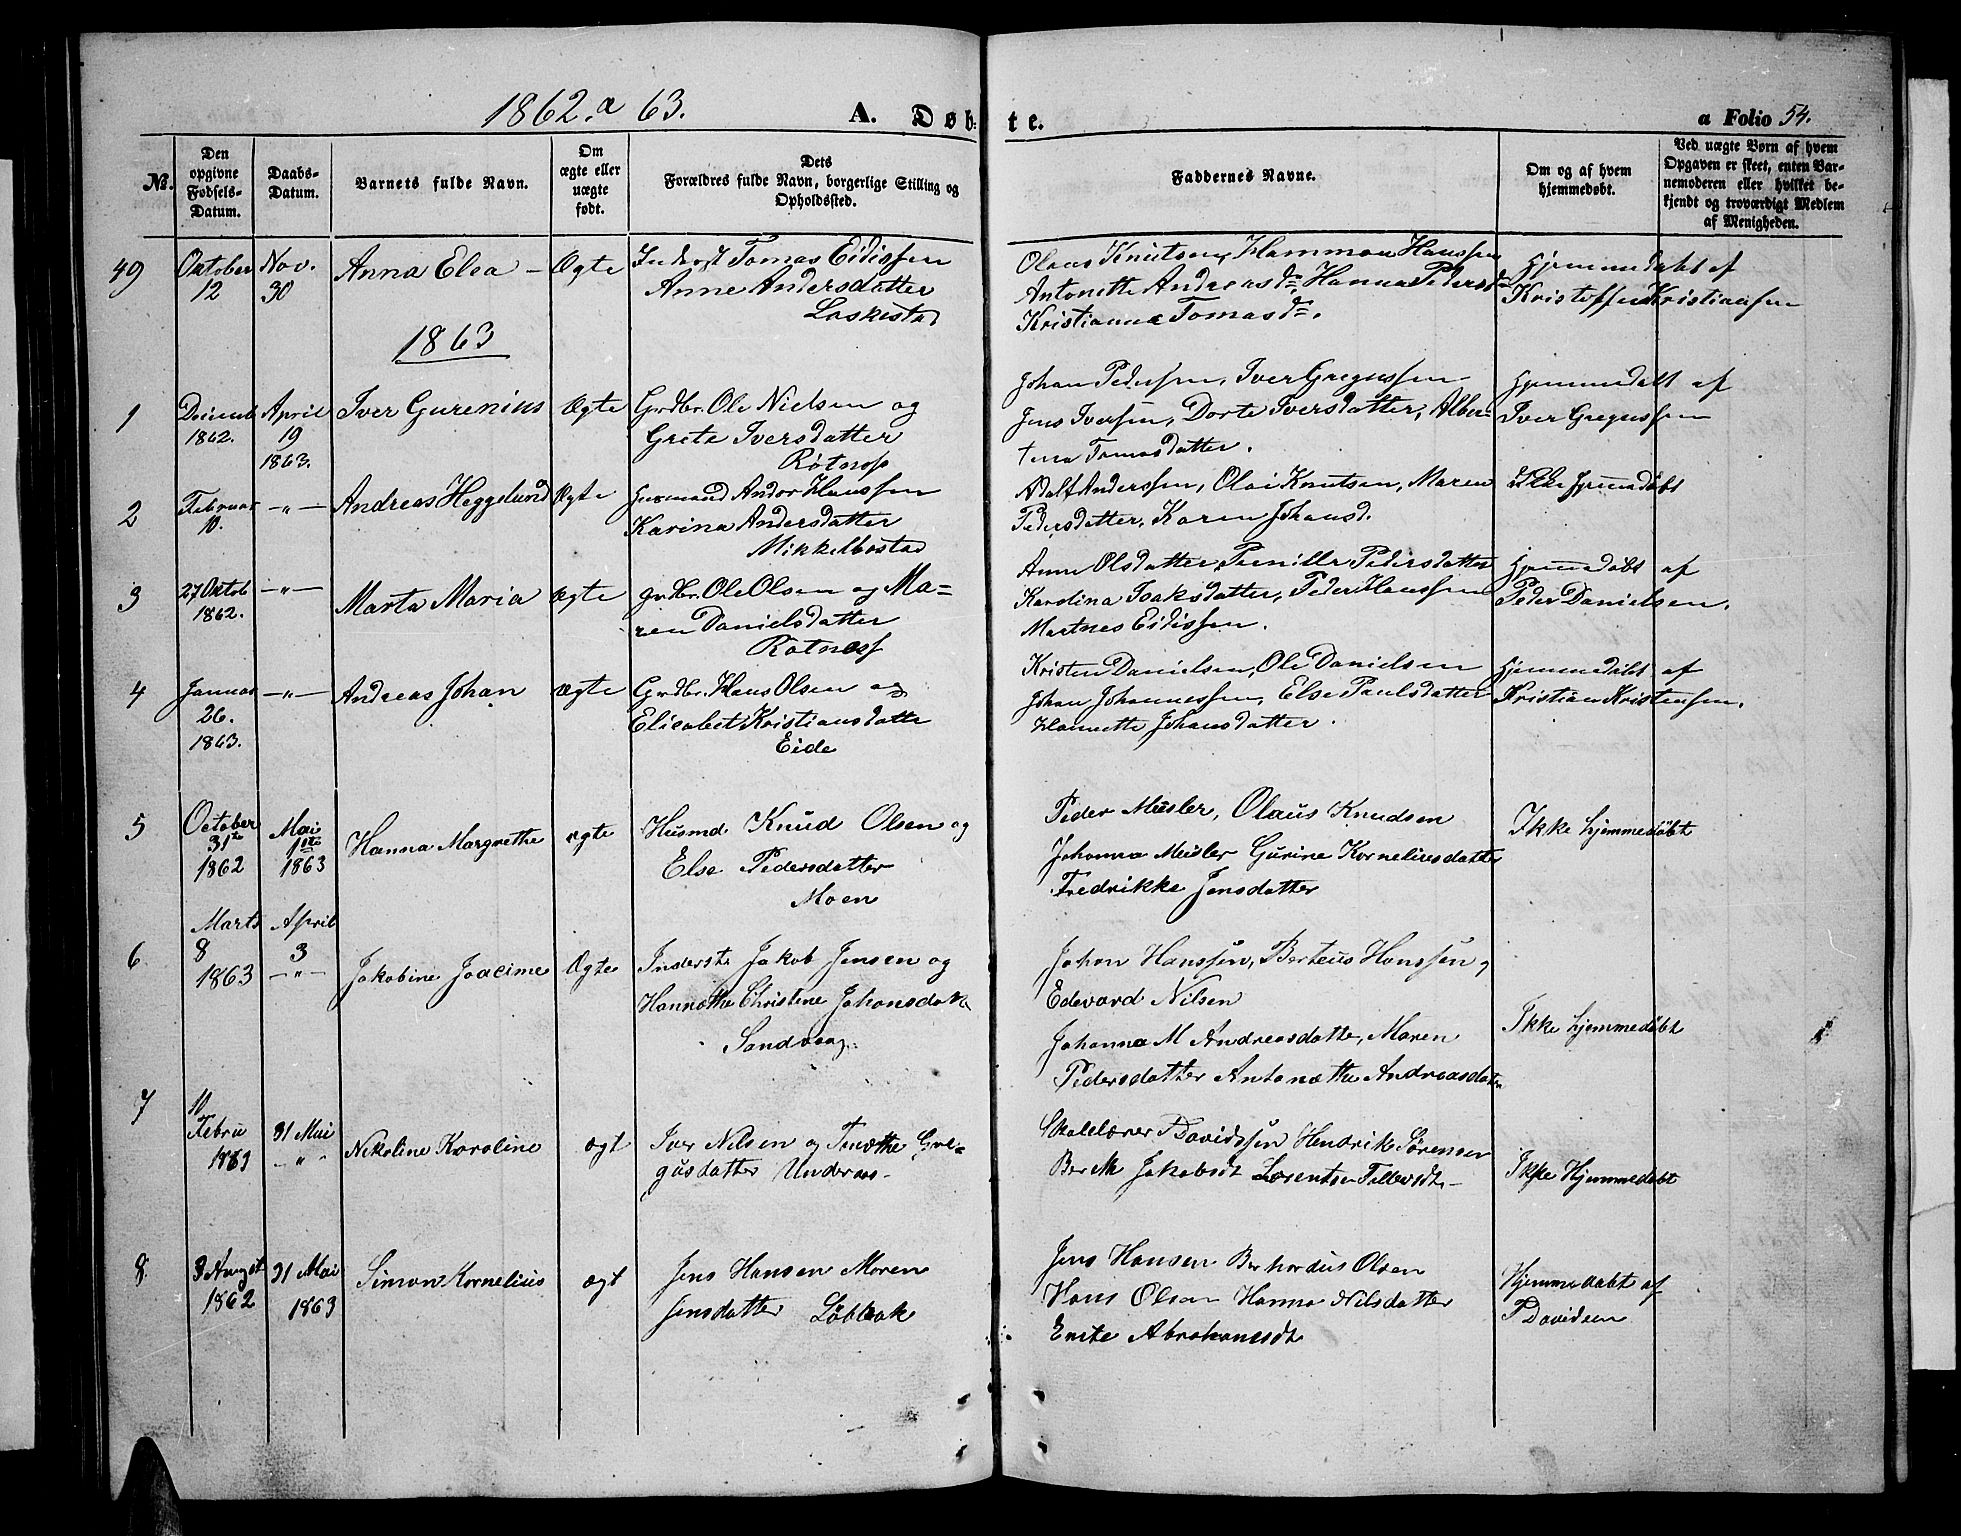 1862. a 63.
A. Døb-
te.
a Folio 54.
No.
Den opgivne Fødsels-Datum.
Daabs-Datum.
Barnets fulde Navn.
Om ægte eller uægte født.
Dets Forældres fulde Navn, borgerlige Stilling og Opholdssted.
Faddernes Navne.
Om og af hvem hjemmedøbt.
Ved uægte Børn af hvem Opgaven er skeet, enten Barnemoderen eller hvilket bekjendt og troværdigt Medlem af Menigheden.
49 October Nov. Anna Elea - Ægte Inderst Tomas Eidissen
12 30 Anne Andersdatter
Laskestad
Olaus Knutsen, Hammon Hanssen
Antonette Andreasd. Hanna Pedersd
Kristianna Tomasd.
Hjemmedøbt af
Kristoffer Kristiansen
1863
1 Decemb April Iver Gurenius Ægte Grdbr. Ole Nielsen og
1862. 19 Grete Iversdatter
1863. Rotnes
Johan Pedersen, Iver Gregussen
Jens Iversen, Dorte Iversdatter, Alber-
tina Tomasdatter.
Hjemmedøbt af
Iver Gregussen
2 Februar -"- Andreas Heggelund Ægte Husmand Andor Hanssen
10. Karina Andersdatter
Mikkelbostad
Adolf Anderssen, Olai Knutsen, Maren
Pedersdatter, Karen Johansd.
Ikke hjemmedøbt
3 27 Octob -"- Marta Maria ægte grdbr. Ole Olsen og Ma=
1862. ren Danielsdatter
Rotness
Anne Olsdatter, Pernille Pedersdatter
Karolina Isaksdatter, Peder Hanssen
Martnes Eidissen.
Hjemmedøbt af
Peder Danielsen.
4 Januar -"- Andreas Johan ægte Grdbr. Hans Olsen og
26. Elisabet Kristiansdatte
1863. Eide
Kristen Danielsen, Ole Danielsen
Johan Johannessen, Else Paulsdatter
Hannette Johansdatter.
Hjemmedøbt af
Kristian Kristensen.
5 October Mai Hanna Margrethe ægte Husmd. Knud Olsen og
31te 1ste Else Pedersdatter
1862 1863 Moen
Peder Meisler, Olaus Knudsen
Johanna Meisler Gurine Korneliusdatter
Fredrikke Jensdatter
Ikke hjemmedøbt
6. Marts April Jakobine Joacime Ægte Inderst Jakob Jensen og
8 3 Hannethe Christine Johansdatte
1863 -"- Sandvaag.
Johan Hanssen, Berteus Hanssen,
Edevard Nilsen
Johanna M Andreasdatte, Maren
Pedersdatter Antonæthe Andreasdater
Ikke hjemmedøbt
7 10 Febru 31 Mai Nikoline Karoline ægt Iver Nilsen og Tinæthe Gre=
1863 -"- gusdatter Undernes-
Skolelærer P Davidssen Hendrik Sørensen
Ber M Jakobsdt Lorentse Tollevsdt-
Ikke Hjemmedøbt
8. 3 August 31 Mai Simon Kornelius ægt Jens Hansen Maren
1862 1863 Jensdatter Løbbak
Jens Hansen Berhardus Olsen
Hans Olsen Hanna Nilsdatter
Enite Abrahamsdt
Hjemmedøbt af
P Davidsen